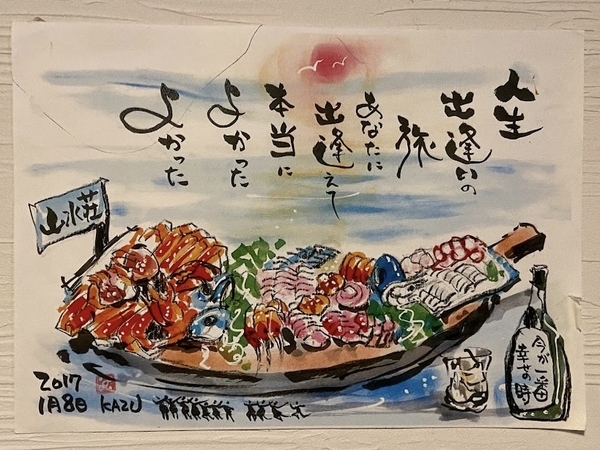 人生
出逢いの
旅
あなたに
出逢えて
本当に
よかった
よかった
山水荘
今が一番
幸せの時
2017
1月8日 KAZU